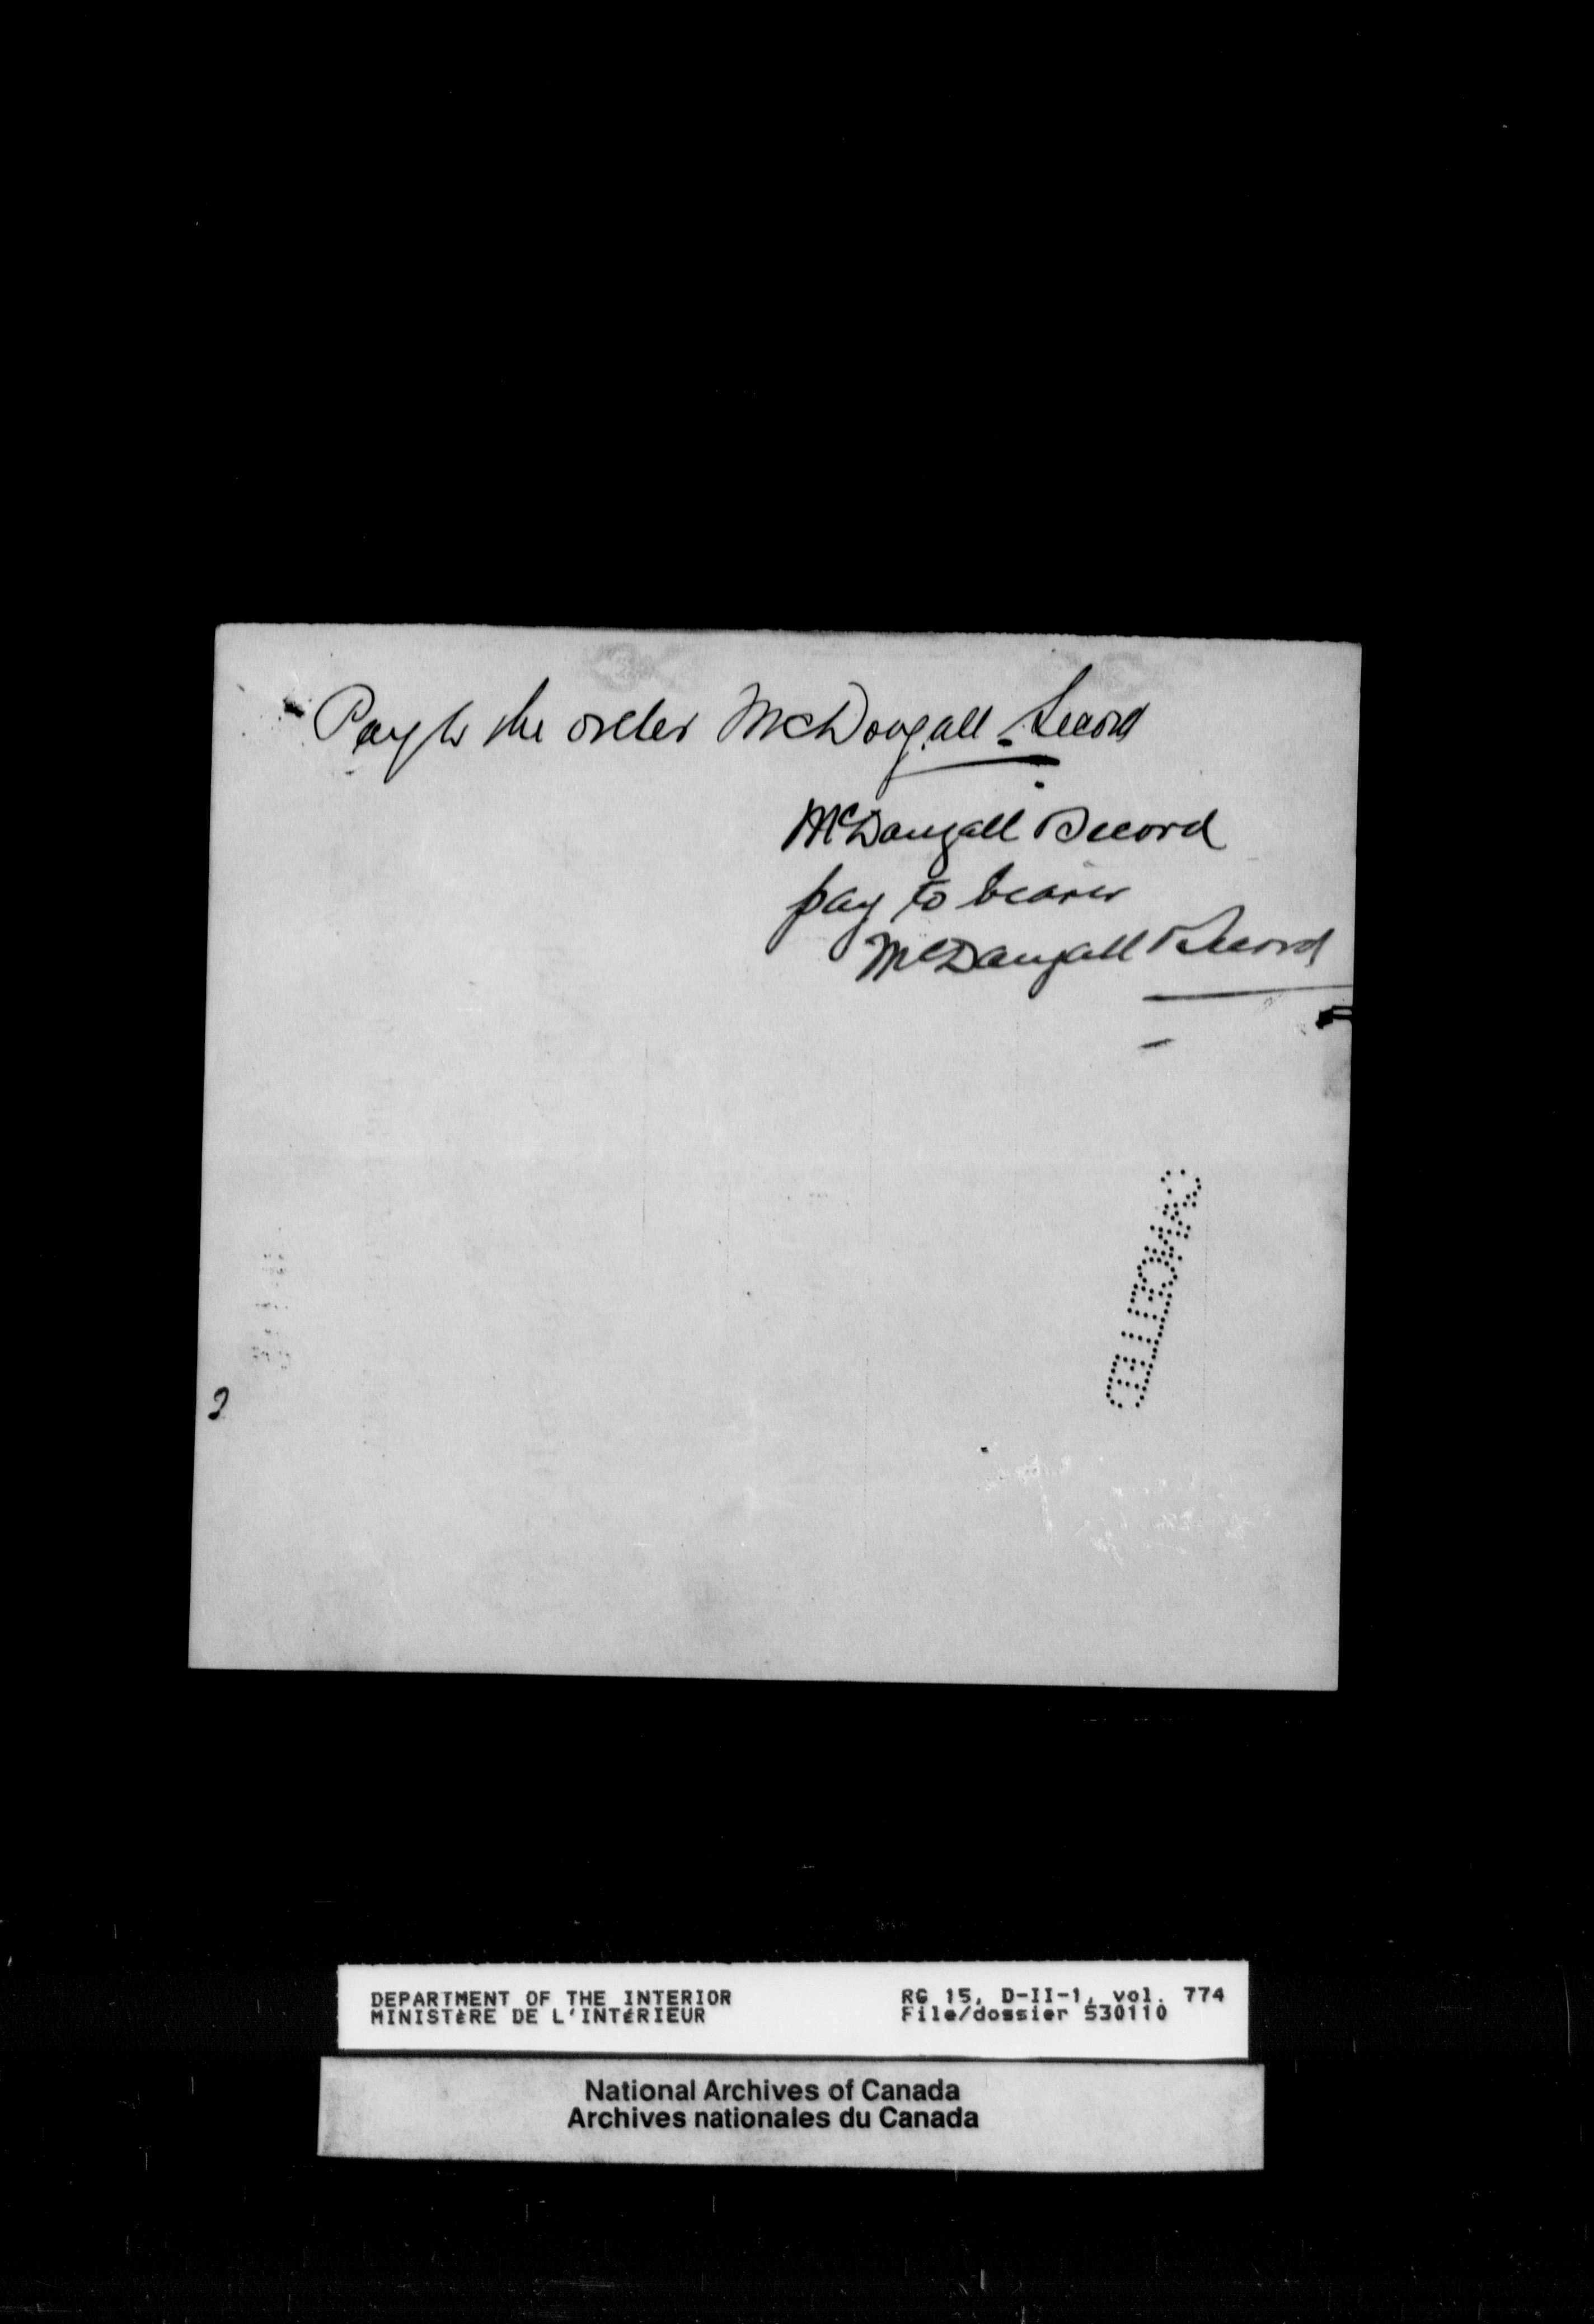 Pay to the order McDougall & Secord
McDougall & Secord
pay to bearer
McDougall & Secord
CANCELLED
2
DEPARTMENT OF THE INTERIOR
MINISTèRE DE L'INTéRIEUR
RG 15, D-II-1, vol. 774
File/dossier 530110
National Archives of Canada
Archives nationales du Canada